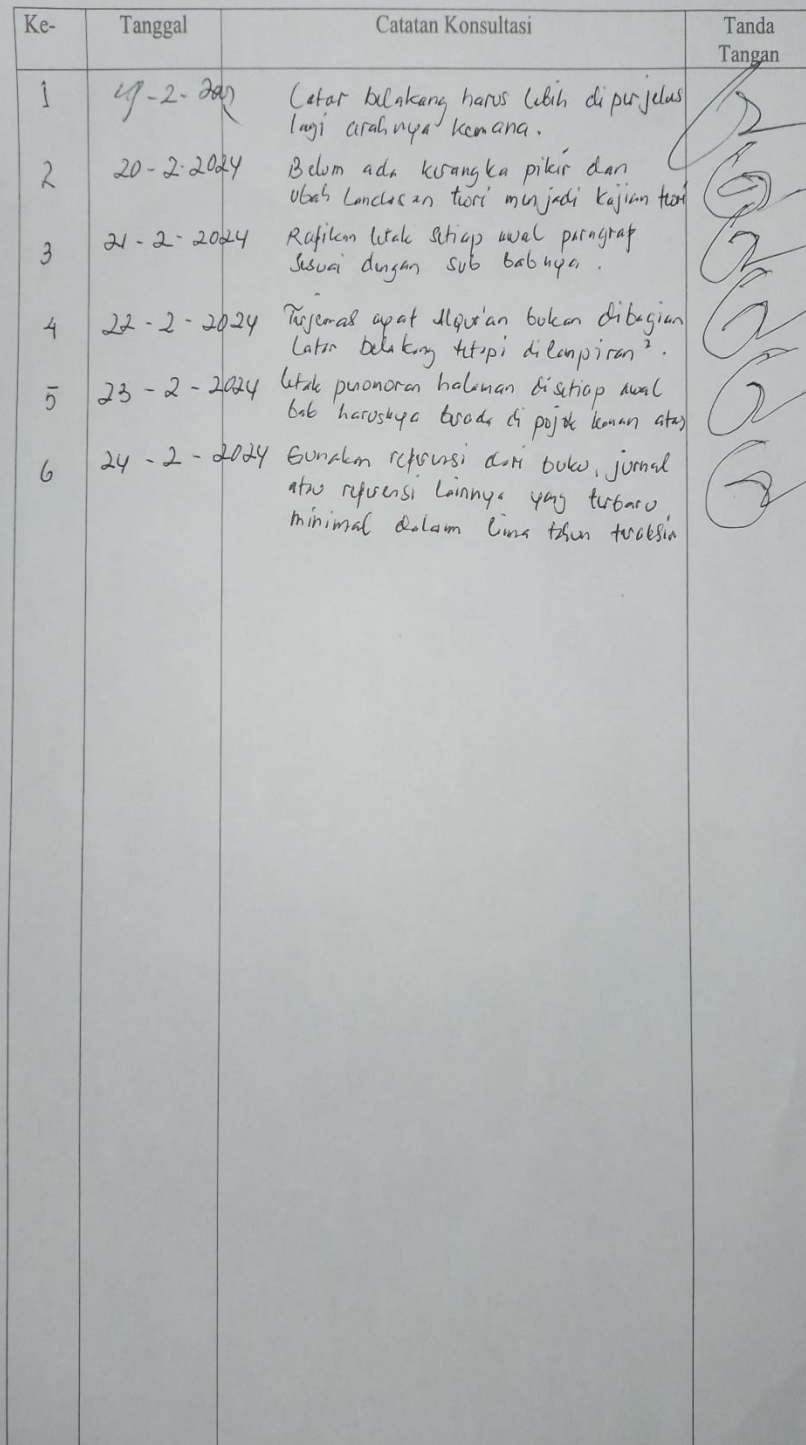 Ke- Tanggal Catatan Konsultasi Tanda
Tangan
1 Latar belakang harus lebih diperjelas
lagi arahnya kemana.
2 20-2-2024 Belum ada kerangka pikir dan
ubah Landasan teori menjadi kajian teori
3 21-2-2024 Rafikan letak setiap awal paragraf
sesuai dengan sub babnya.
4 22-2-2024 Terjemas ayat Alqur'an bukan dibagian
Latar belakang tetapi dilampiran².
5 23-2-2024 letak penomoran halaman disetiap awal
bab harusnya berada di pojok kanan atas
6 24-2-2024 Gunakan referensi dari buku, jurnal
atau referensi Lainnya yang terbaru
minimal dalam lima tahun terakhir